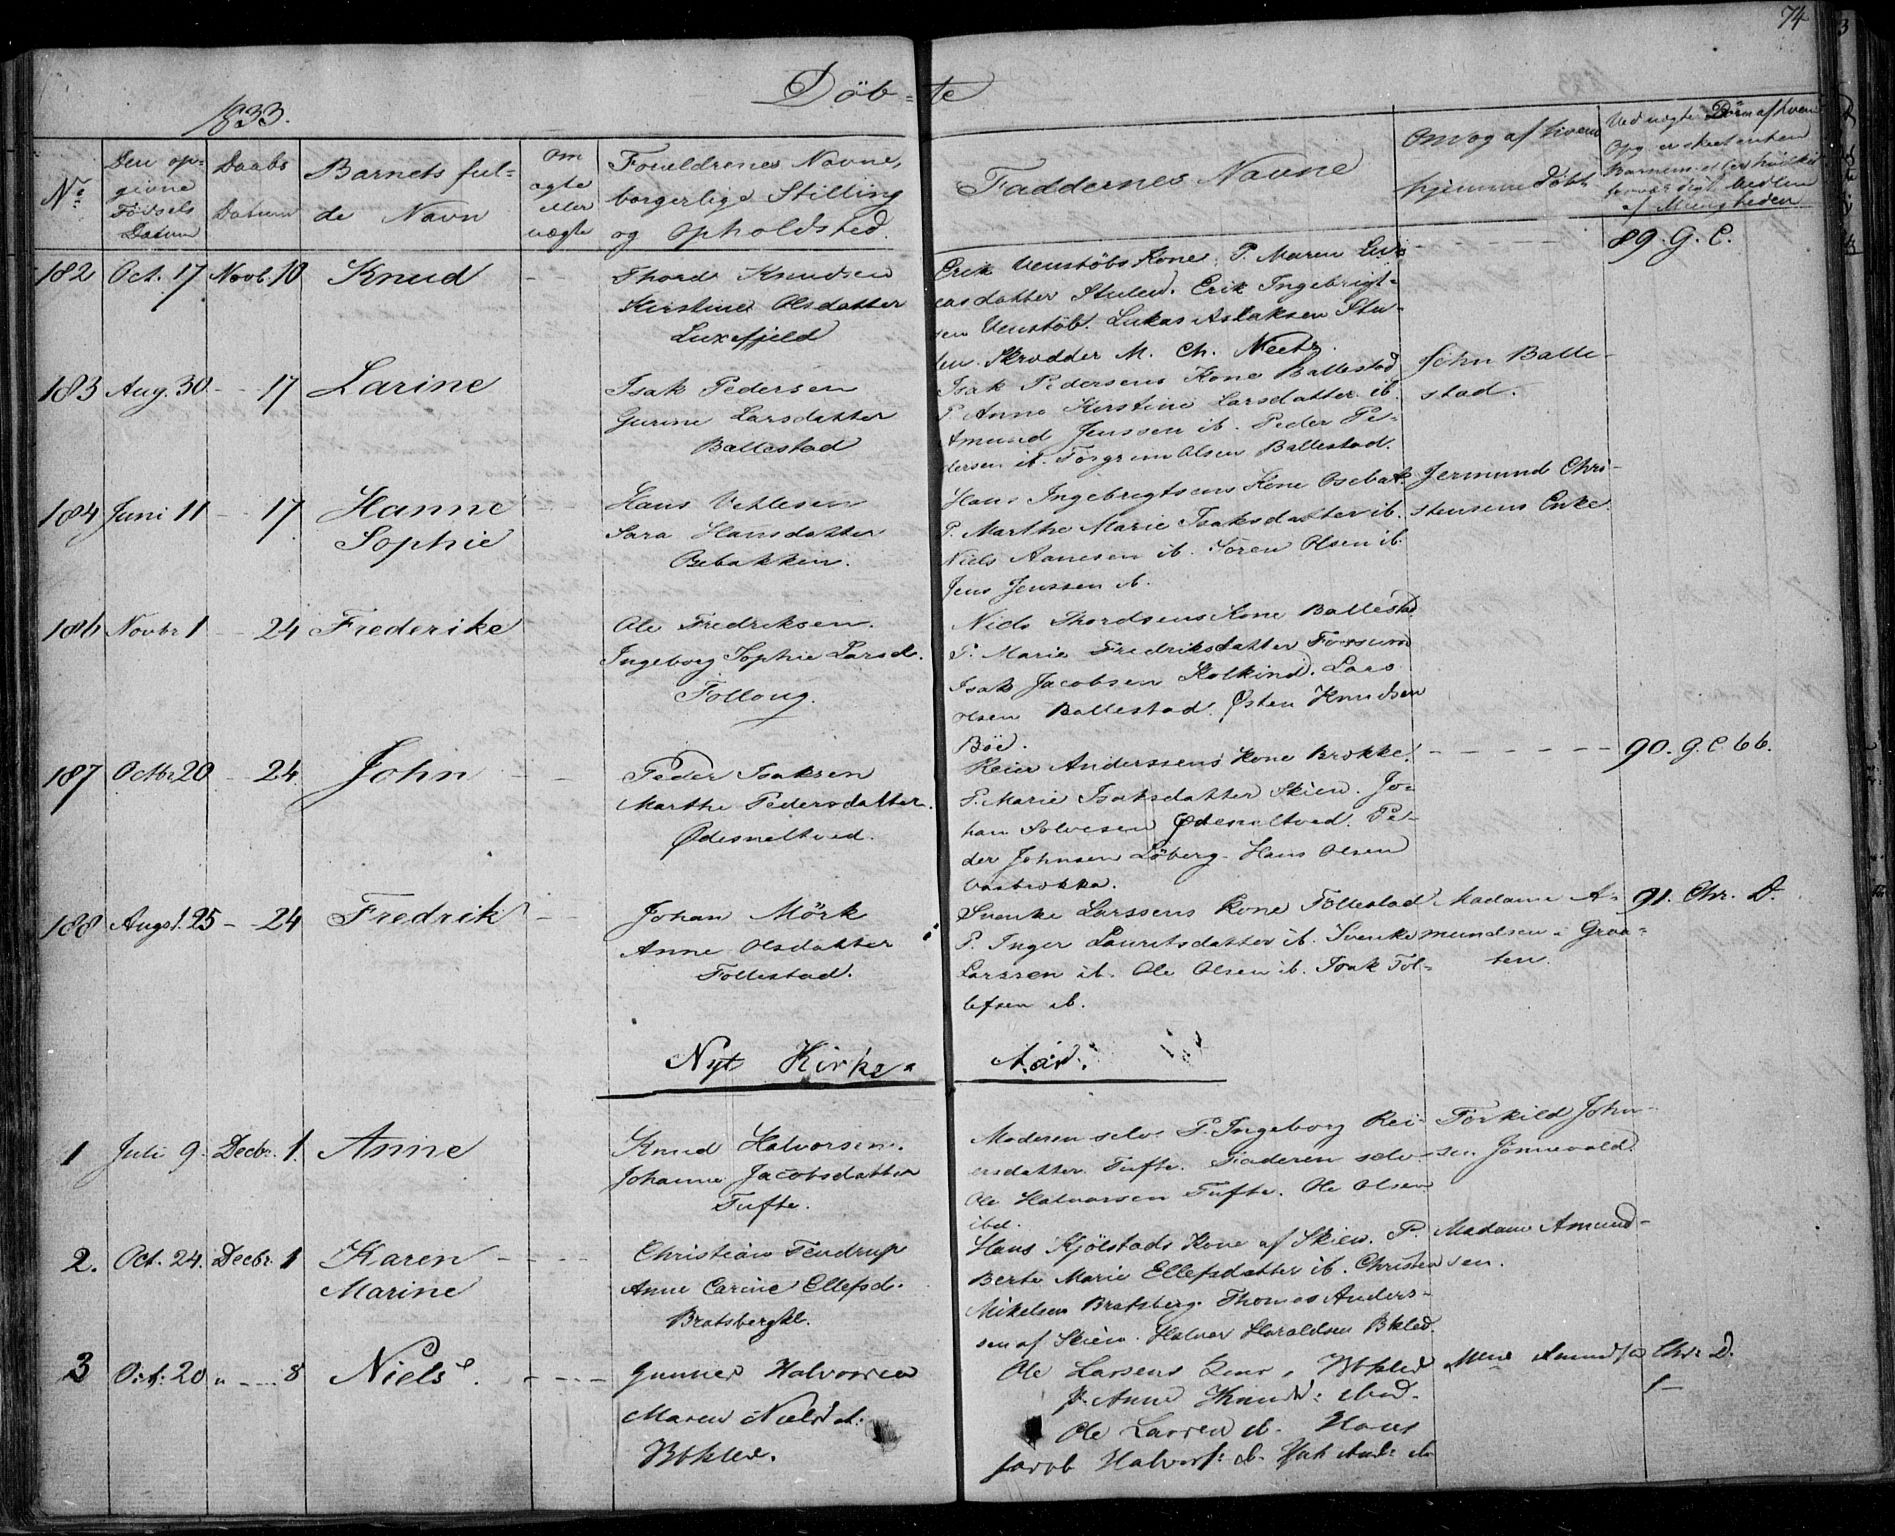 74
Döb-te
1833.
No
Den op-
givne
Födsels
Datum
Daabs
Datum
Barnets ful-
de Navn
om
ægte
eller
uægte
Forældrenes Navne,
borgerlige Stilling
og Opholdsted.
Faddernes Navne
Om og af hvem
hjemmedöbt
Ved uægte Börn af hvem
af Menigheden
182 Oct. 17 Novb. 10 Knud
Thord Knudsen
Kirstine Olsdatter
Luxefjeld
Erik Venstöbs Kone. P. Maren Lu-
casdatter Stulen. Erik Ingebrigt-
sen Venstöb. Lukas Aslaksen Stu-
len. Skrædder M. Ch. Neets.
89. G. C.
183 Aug. 30 - - 17 Larine
Isak Pedersen
Gurine Larsdatter
Ballestad
Isak Pedersens Kone Ballestad
P. Anne Kirstine Larsdatter ib.
Amund Jenssen ib. Peder Pe-
dersen ib. Torgrim Olsen Ballestad.
John Balle-
stad.
184 Juni 11 - - 17 Hanne
Sophie
Hans Vetlesen
Sara Hansdatter
Bebakken.
Hans Ingebrigtsens Kone Osebak.
P. Marthe Marie Isaksdatter ib.
Niels Aanesen ib. Sören Olsen ib.
Jens Jenssen ib.
Jermund Chri-
stensens Enke.
186 Novbr 1 - 24 Frederike
Ole Fredriksen.
Ingeborg Sophie Larsd.
Follaug.
Niels Thordsens Kone Ballestad
P. Marie Fredriksdatter Fossum
Isak Jacobsen Kolkind. Lars
Olsen Ballestad. Östen Knudsen
Böe.
187 Octbr 20 - 24 John
Peder Isaksen
Marthe Pedersdatter.
Ödesneltved.
Reier Anderssens Kone Brokke.
P. Marie Isaksdatter Skien. Jo-
han Solvesen Ödesneltved. Pe-
der Johnsen Löberg. Hans Olsen
90. G. C. 66.
188 Augst. 25 - - 24 Fredrik
Johan Mörk
Anne Olsdatter
Follestad.
Svenke Larssens Kone Follestad
P. Inger Lauritsdatter ib. Svenke
Larssen ib. Ole Olsen ib. Isak Tol-
lefsen ib.
Madame A-
mundsen - Graa-
ten.
91. Chr. D.
Nyt Kirke-Aar.
1 Juli 9. Decbr. 1. Anne
Knud Halvorsen.
Johanne Jacobsdatter
Tufte.
Moderen selv. P. Ingeborg Rei-
ersdatter Tufte. Faderen selv.
Ole Halvorsen Tufte. Ole Olsen
ibd.
Törkild John-
sen Jönnevald.
2. Oct. 24. Decbr. 1 Karen
Marine
Christian Tendrup
Anne Carine Ellefsd.
Bratsbergkl.
Hans Kjölstads Kone af Skien. P.
Berte Marie Ellefsdatter ib. Christen
Mikelsen Bratsberg. Thomas Anders-
sen af Skien. Halvor Haraldsen Bkled.
Madame Amund-
sen.
3 Oct. 20 " - - 8 Niels.
Gunner Halvorsen
Maren Nielsd.
Bbkled.
Ole Larsens Kone, Bbkled
P. Anne Knuds: ibid.
Ole Larsen ib. Hans
Jacob Halvors: ib.
Chr. D.